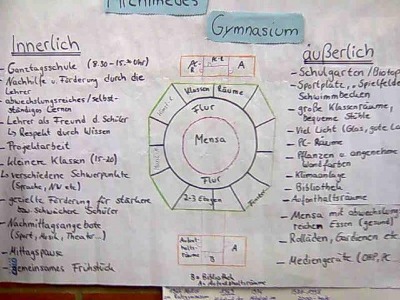 Archimedes
Gymnasium
Innerlich
- Ganztagsschule (8.30 - 15.30 Uhr)
- Nachhilfe u. Förderung durch die Lehrer
- abwechslungsreiches/selbst-
ständiges Lernen
- Lehrer als Freund d. Schüler
↳ Respekt durch Wissen
- Projektarbeit
- kleinere Klassen (15-20)
↳ verschiedene Schwerpunkte
(Sprache, NW etc)
- gezielte Förderung für stärkere
bzw. schwächere Schüler
- Nachmittagsangebote
(Sport, Musik, Theater...)
- Mittagspause
gemeinsames Frühstück
A
Klassen Räume
Flur
Mensa
Flur
2-3 Etagen
Fenster
Aufent-
halts-
räume
A
B
B = Bibliothek
A = Aufenthaltsräume
äußerlich
- Schulgarten/Biotop
- Sportplatz, Spielfelder
Schwimmbecken
- große Klassenräume,
bequeme Stühle
- Viel Licht (Glas, gute
- PC-Räume
- Pflanzen u. angenehme
Wandfarben
- Klimaanlage
- Bibliothek
- Aufenthaltsräume
- Mensa mit abwechslungs-
reichen Essen (gesund)
- Rolläden, Gardienen etc
- Mediengeräte (OHP, PC